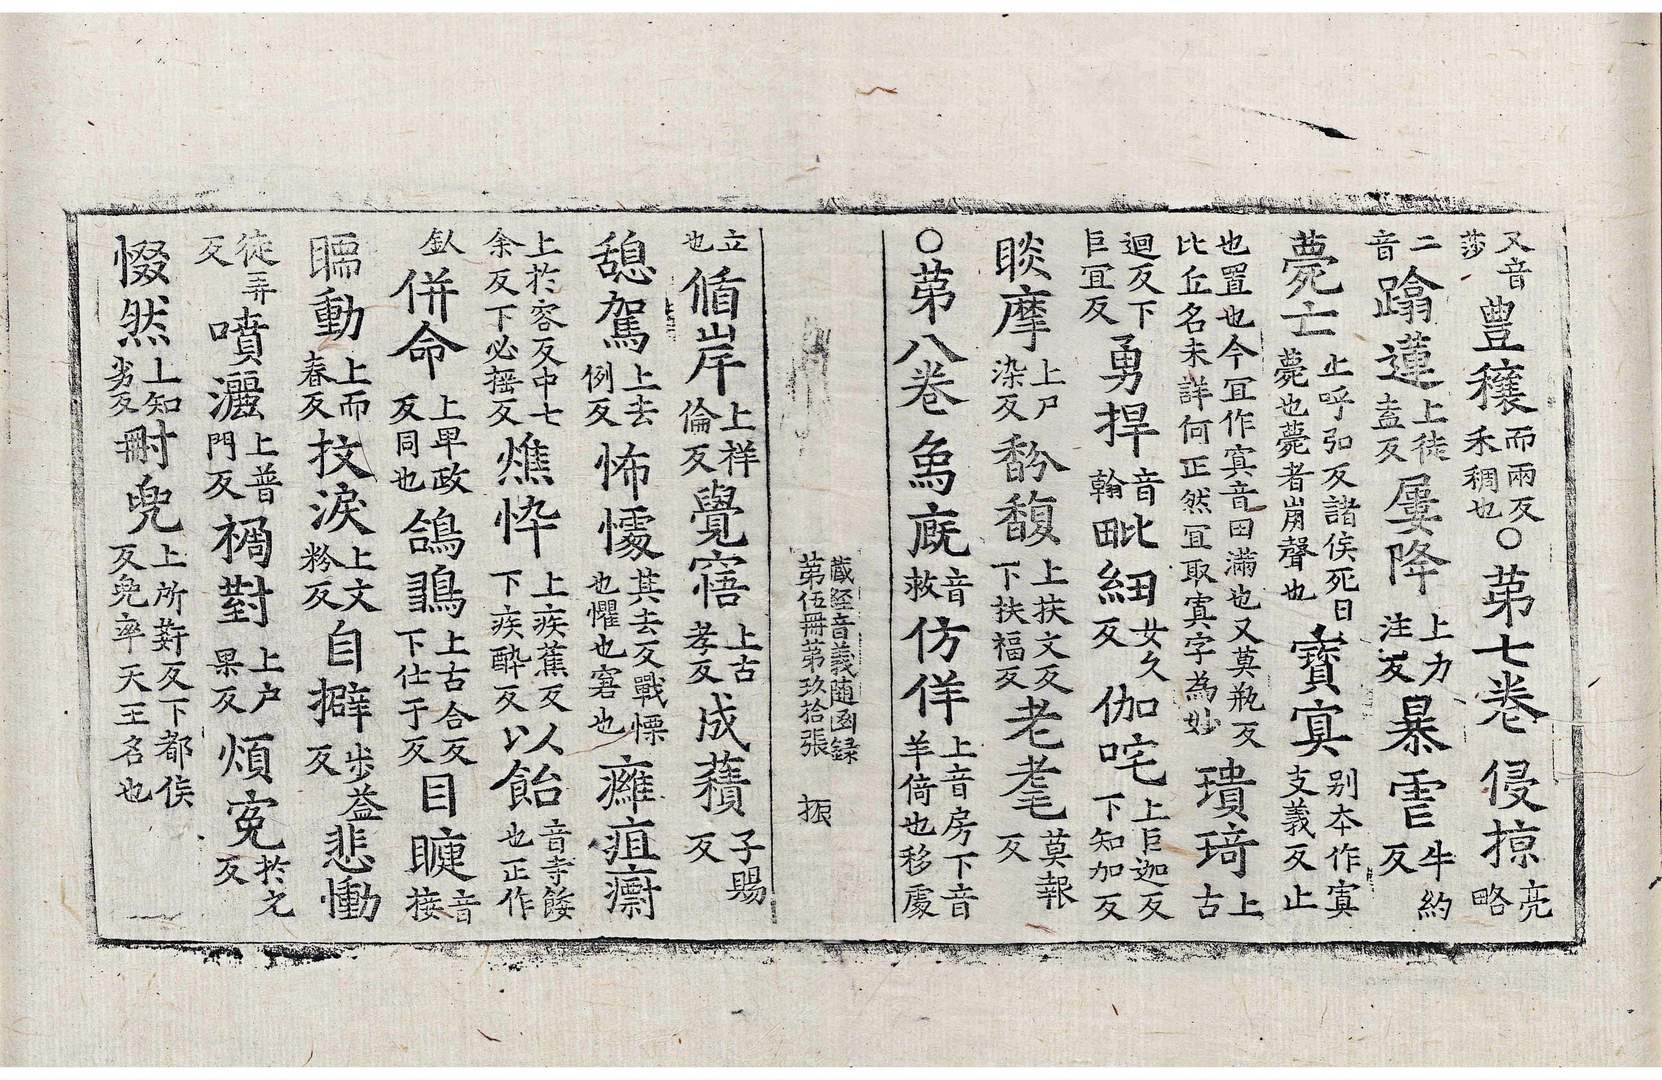 又音莎豐穰而兩反禾稠也○苐七卷侵掠亮略
二音蹹蓮上徒盍反屢降上力注反暴虐牛約反
薨亡止呼弘反諸侯死曰薨也薨者崩聲也寶寘別本作寘支義反止
也置也今冝作寘音田滿也又莫瓶反比丘名未詳何正然冝取寘字為妙璝琦上古
迴反下巨冝反勇捍音翰毗紐女久反伽咤上巨迦反下知加反
睒摩上尸染反馚馥上扶文反下扶福反老耄莫報反
○苐八卷為廐音救仿佯上音房下音羊倚也移處
藏經音義随函録苐伍冊苐玖拾張 振
立也循岸上祥倫反覺寤上古孝反成蘱子賜反
憩駕上去例反怖懅其去反戰慄也懼也窘也癰疽癤
上於容反中七余反下必搖反憔悴上疾蕉反下疾醉反以飴音寺餧也正作
飤併命上卑政反同也鴿鶵上古合反下仕于反目䀹音接
瞤動上而春反抆淚上文粉反自擗步益反悲慟
徒弄反噴灑上普門反禍對上户果反煩冤扵元反
惙然上知劣反冊尌兜上所薪反下都侯反兠率天王名也